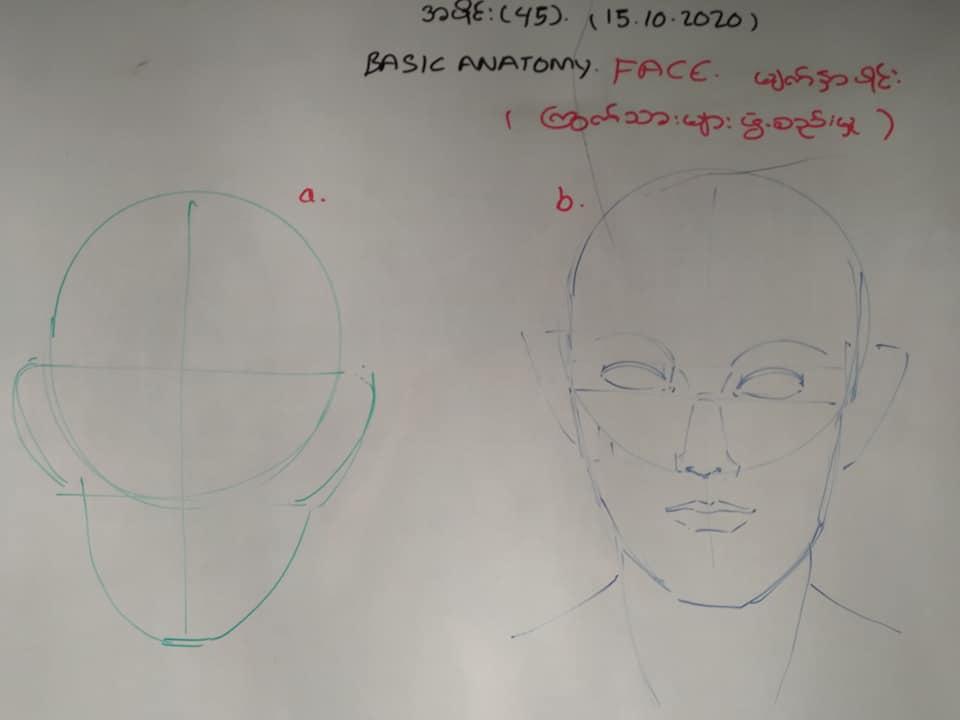 အခန်း (45). (15.10.2020)
BASIC ANATOMY. FACE. မျက်နှာ ပိုင်း
( ကြွက်သားများ ဖွဲ့စည်းမှု )
a.
b.